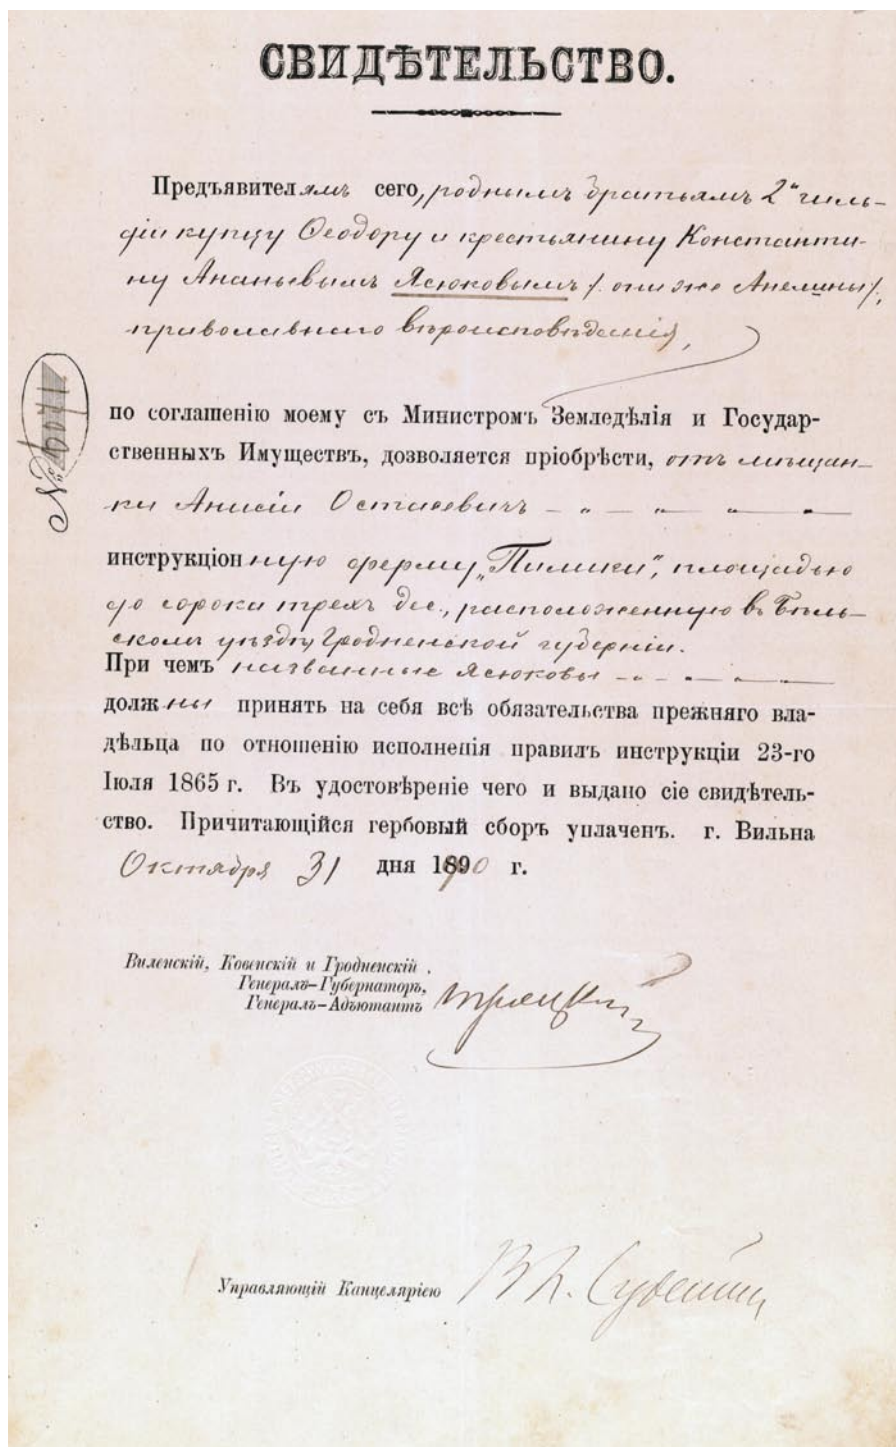 СВИДѢТЕЛЬСТВО.
Предъявителямъ сего, роднымъ братьямъ 2й гиль-
діи купцу Ѳеодору и крестьянину Константи-
ну Ананьевымъ Ясюковымъ /: они же Анелины /:,
православнаго вѣроисповѣданія,
по соглашенію моему съ Министромъ Земледѣлія и Государ-
ственныхъ Имуществъ, дозволяется пріобрѣсти, отъ мѣщан-
ки Анисіи Остасевичъ
инструкціонную ферму „Пилики", площадью
до сорока трехъ дес., расположенную въ Бѣль-
скомъ уѣздѣ, Гродненской губерніи.
При чемъ названные Ясюковы
должны принять на себя всѣ обязательства прежняго вла-
дѣльца по отношенію исполненія правилъ инструкціи 23-го
Іюля 1865 г. Въ удостовѣреніе чего и выдано сіе свидѣтель-
ство. Причитающійся гербовый сборъ уплаченъ. г. Вильна
Октября 31 дня 1890 г.
Виленскій, Ковенскій и Гродненскій
Генералъ-Губернаторъ,
Генералъ-Адъютантъ Троцкій
Управляющій Канцеляріею
№